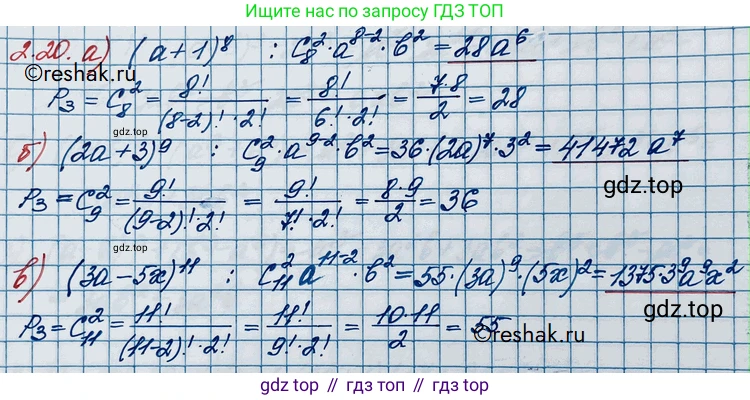 Ищите нас по запросу ГДЗ ТОП
2.20. а) (a+1)⁸ : C₈²·a⁸⁻²·b² = 28a⁶
©reshak.ru
P₃ = C₈² = 8!/((8-2)!·2!) = 8!/(6!·2!) = 7·8/2 = 28
gdz.top
б) (2a+3)⁹ : C₉²·a⁹⁻²·b² = 36·(2a)⁷·3² = 41472 a⁷
P₃ = C₉² = 9!/((9-2)!·2!) = 9!/(7!·2!) = 8·9/2 = 36
gdz.top
gdz.top
в) (3a-5x)¹¹ : C₁₁² a¹¹⁻²·b² = 55·(3a)⁹·(5x)² = 1375·3⁹a⁹x²
P₃ = C₁₁² = 11!/((11-2)!·2!) = 11!/(9!·2!) = 10·11/2 = 55
gdz.top
©reshak.ru
gdz топ // гдз топ // gdz.top